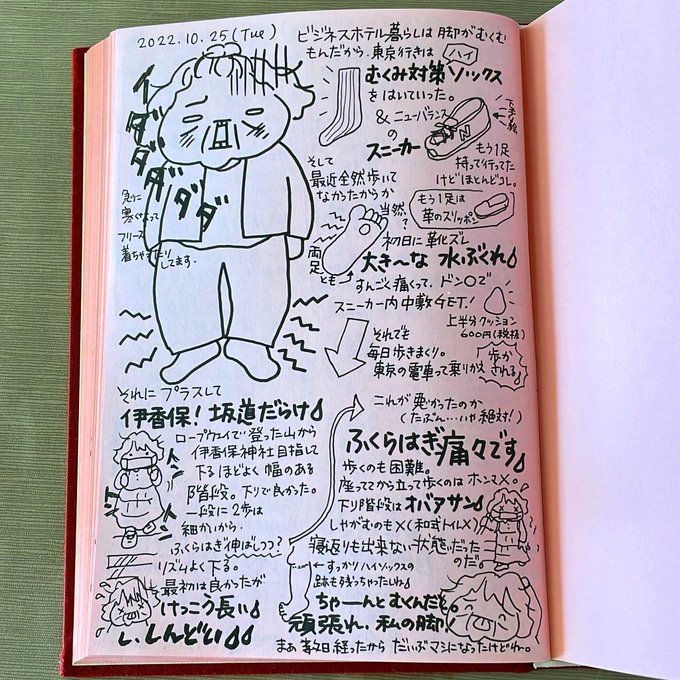 2022.10.25(Tue)
ビジネスホテル暮らしは脚がむくむ
もんだから、東京行きは
ハイ
むくみ対策ソックス
をはいていった。
& ニューバランス
の
スニーカー
下手な絵
もう1足
持って行ってた
けどほとんどコレ。
もう1足は
革のスリッポン
イダダダダダダ
急に
寒くなって
フリース
着ちゃったり
してます。
そして
最近全然歩いて
なかったからか
当然?
初日に靴ズレ
大き〜な 水ぶくれ
両足とも→
すんごく痛くって、ドン〇で
スニーカー内中敷GET!
上半分クッション
600円(税抜)
それでも
毎日歩きまくり。
東京の電車って乗りかえ
歩かされる
それにプラスして
伊香保!坂道だらけ
ロープウェイで登った山から
伊香保神社目指して
下るほどよく幅のある
階段。下りで良かった。
一段に2歩は
細かいから、
ふくらはぎ伸ばしつつ?
リズムよく下る。
トントン
最初は良かったが
けっこう長い
し、しんどい
これが悪かったのか
(たぶん…いや絶対!)
ふくらはぎ痛々です
歩くのも困難。
座ってて立って歩くのはホンマ×。
下り階段はオバアサン
しゃがむのも×(和式トイレ×)
寝返りも出来ない状態だった
のだ。
←すっかりハイソックスの
跡も残っちゃったしね
ちゃーんとむくんだと。
頑張れ、私の脚!
まぁ数日経ったからだいぶマシになったけどね〜。